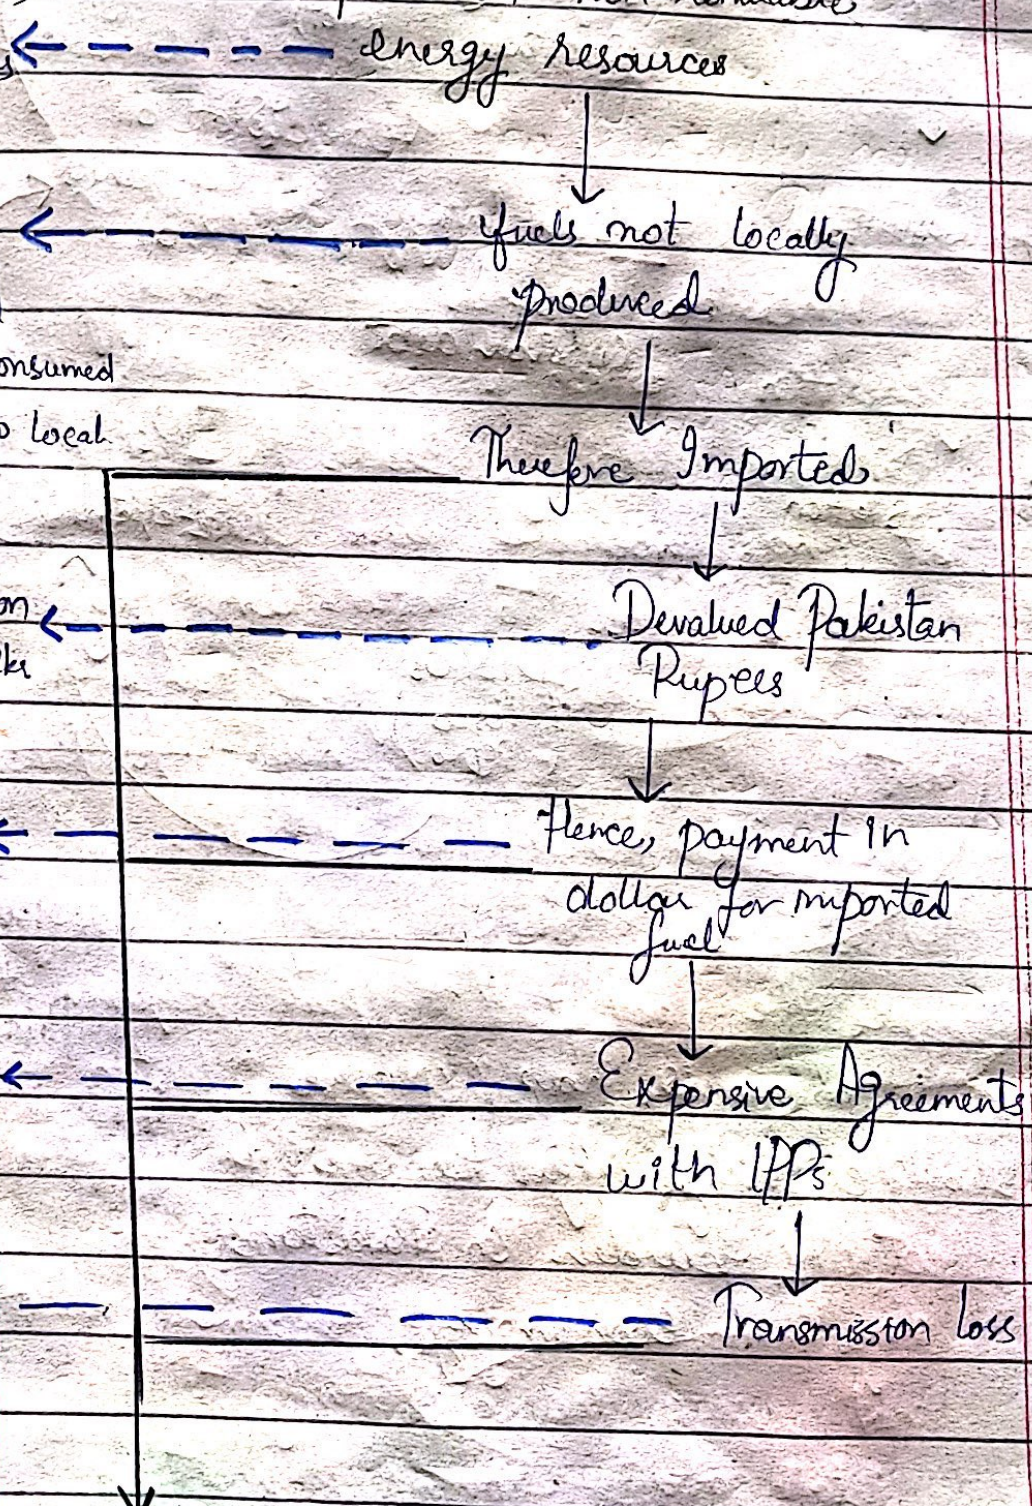 energy resources
fuels not locally
produced
onsumed
local
Therefore Imported
on
Devalued Pakistan
Rupees
Hence, payment in
dollar for imported
fuel
Expensive Agreements
with IPPs
Transmission loss